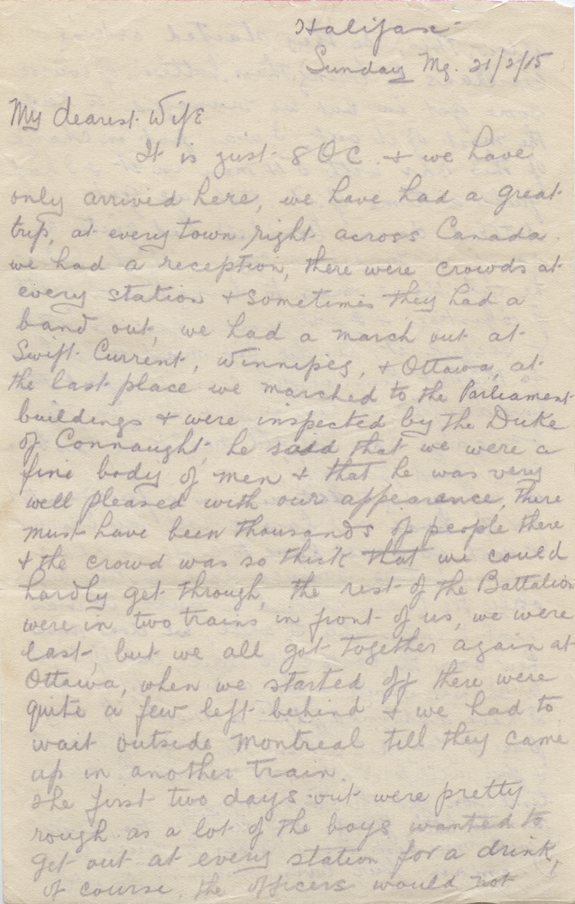 Halifax
Sunday Mg. 21/2/15
My dearest Wife
It is just 8 OC. + we have
only arrived here, we have had a great
trip, at every town right across Canada
we had a reception, there were crowds at
every station + sometimes they had a
band out, we had a march out at
Swift Current, Winnipeg, + Ottawa, at
the last place we marched to the Parliament
buildings + were inspected by the Duke
of Connaught, he said that we were a
fine body of men + that he was very
well pleased with our appearance, there
must have been thousands of people there
+ the crowd was so thick that we could
hardly get through, the rest of the Battalion
were in two trains in front of us, we were
last, but we all got together again at
Ottawa, when we started off there were
quite a few left behind + we had to
wait outside Montreal till they came
up in another train.
The first two days out were pretty
rough as a lot of the boys wanted to
get out at every station for a drink,
of course, the officers would not